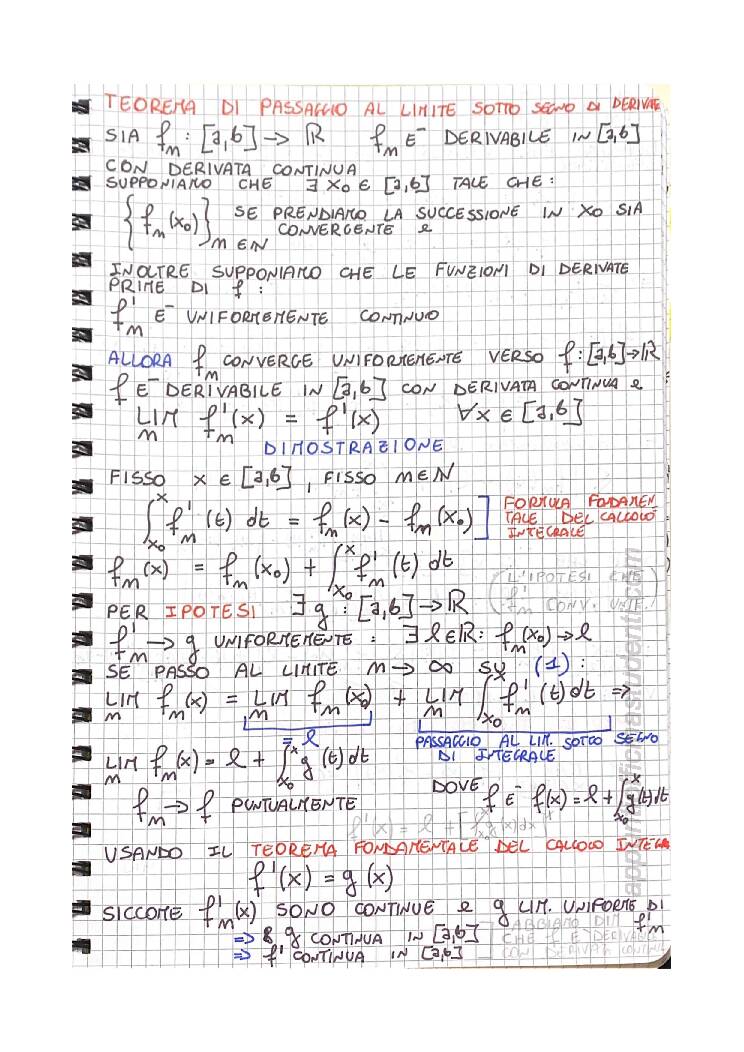 TEOREMA DI PASSAGGIO AL LIMITE SOTTO SEGNO DI DERIVATE
SIA fₙ : [a,b] → ℝ fₙ E⁻ DERIVABILE IN [a,b]
CON DERIVATA CONTINUA
SUPPONIAMO CHE ∃ x₀ ∈ [a,b] TALE CHE :
{fₙ(x₀)}ₙ∈ℕ SE PRENDIAMO LA SUCCESSIONE IN x₀ SIA
CONVERGENTE e
INOLTRE SUPPONIAMO CHE LE FUNZIONI DI DERIVATE
PRIME DI f :
f'ₙ E⁻ UNIFORMEMENTE CONTINUO
ALLORA fₙ CONVERGE UNIFORMEMENTE VERSO f : [a,b] → ℝ
f E⁻ DERIVABILE IN [a,b] CON DERIVATA CONTINUA e
LIMₙ f'ₙ(x) = f'(x) ∀x ∈ [a,b]
DIMOSTRAZIONE
FISSO x ∈ [a,b] , FISSO n ∈ ℕ
∫ₓ₀ˣ f'ₙ(t) dt = fₙ(x) - fₙ(x₀) ] FORMULA FONDAMEN
TALE DEL CALCOLO
INTEGRALE
fₙ(x) = fₙ(x₀) + ∫ₓ₀ˣ f'ₙ(t) dt
(L'IPOTESI CHE
f'ₙ CONV. UNIF.)
PER IPOTESI ∃ g : [a,b] → ℝ
f'ₙ → g UNIFORMEMENTE : ∃ l ∈ ℝ : fₙ(x₀) → l
SE PASSO AL LIMITE n → ∞ SU (1) :
LIMₙ fₙ(x) = LIMₙ fₙ(x₀) + LIMₙ ∫ₓ₀ˣ f'ₙ(t) dt ⇒
= l PASSAGGIO AL LIM. SOTTO SEGNO
DI INTEGRALE
LIMₙ fₙ(x) = l + ∫ₓ₀ˣ g(t) dt
fₙ → f PUNTUALMENTE DOVE f E⁻ f(x) = l + ∫ₓ₀ˣ g(t) dt
USANDO IL TEOREMA FONDAMENTALE DEL CALCOLO INTEGRA
f'(x) = g(x)
SICCOME f'ₙ(x) SONO CONTINUE e g LIM. UNIFORME DI f'ₙ
⇒ g CONTINUA IN [a,b]
⇒ f' CONTINUA IN [a,b]
ABBIAMO DIM
CHE f E⁻ DERIVABI
CON DERIVATA CONTINUA